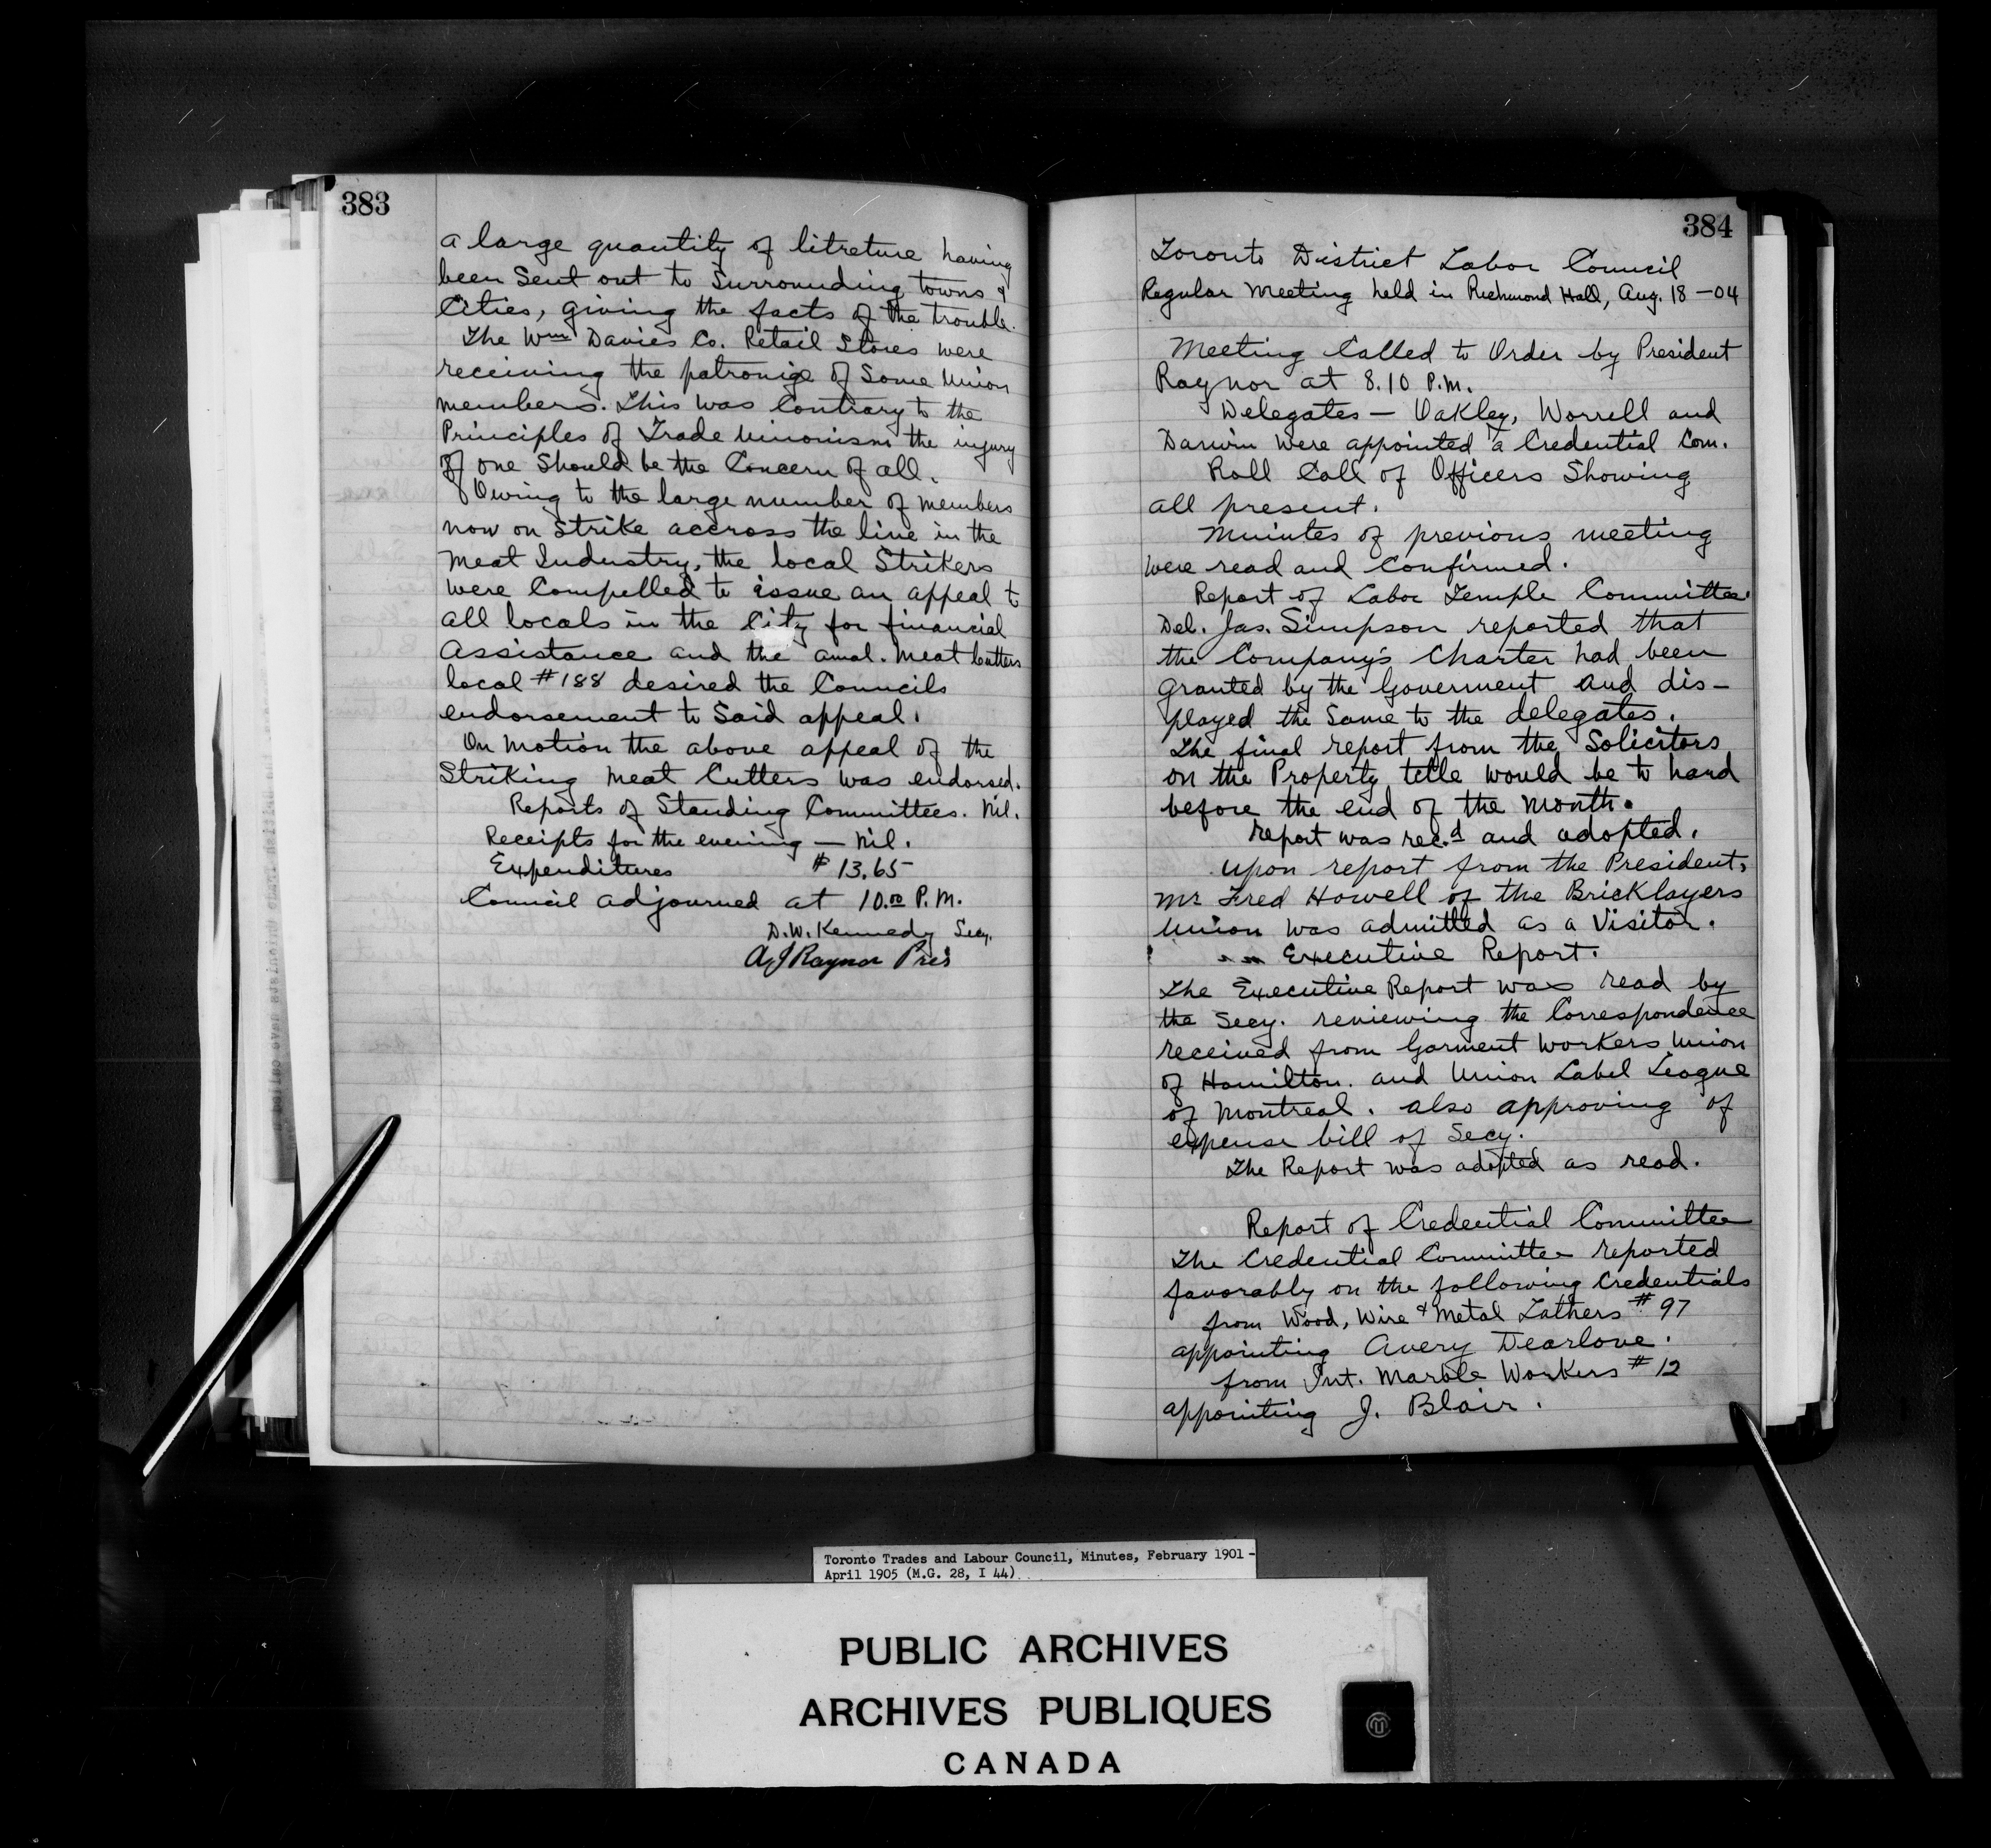 383
a large quantity of litreture having
been Sent out to Surrounding towns &
Cities, giving the facts of the trouble.
The Wm Davies Co. Retail Stores were
receiving the patronige of Some Union
members. This was Contrary to the
Principles of Trade Unionism the injury
of one Should be the Concern of all.
Owing to the large number of members
now on Strike accross the line in the
Meat Industry, the local Strikers
were Compelled to issue an appeal to
all locals in the City for financial
Assistance and the amal. Meat Cutters
local #188 desired the Councils
endorsement to Said appeal.
On Motion the above appeal of the
Striking Meat Cutters was endorsed.
Reports of Standing Committees. Nil.
Receipts for the evening — Nil.
Expenditures $13.65
Council adjourned at 10.00 P.M.
D.W. Kennedy Secy.
A J Raynor Pres
384
Toronto District Labor Council
Regular Meeting held in Richmond Hall, Aug. 18 - 04
Meeting Called to Order by President
Raynor at 8.10 P.M.
Delegates — Oakley, Worrell and
Darwin were appointed a Credential Com.
Roll Call of Officers Showing
all present.
Minutes of previous meeting
were read and Confirmed.
Report of Labor Temple Committee
Del. Jas. Simpson reported that
the Company's Charter had been
granted by the Goverment and dis-
played the Same to the delegates.
The final report from the Solicitors
on the Property title would be to hand
before the end of the Month.
report was rec.d and adopted.
upon report from the President,
Mr Fred Howell of the Bricklayers
Union was admitted as a Visitor.
Executive Report.
The Executive Report was read by
the Secy. reviewing the Correspondence
received from Garment Workers Union
of Hamilton. and Union Label League
of Montreal. also approving of
expense bill of Secy.
The Report was adopted as read.
Report of Credential Committee
The Credential Committee reported
favorably on the following Credentials
from Wood, Wire & Metal Lathers #97
appointing Avery Dearlove.
from Int. Marble Workers #12
appointing J. Blair.
Toronto Trades and Labour Council, Minutes, February 1901 -
April 1905 (M.G. 28, I 44)
PUBLIC ARCHIVES
ARCHIVES PUBLIQUES
CANADA